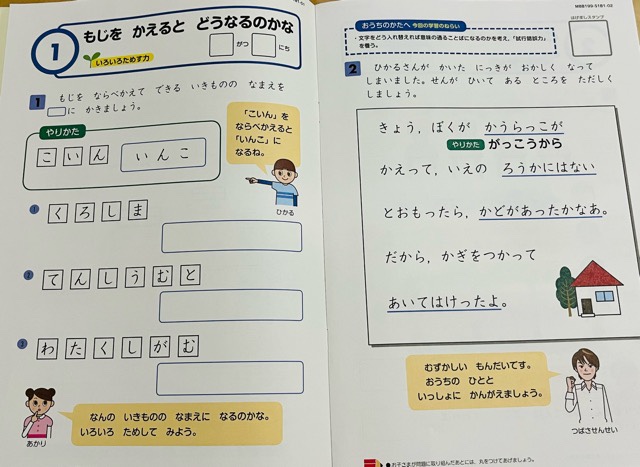 1
もじを かえると どうなるのかな
いろいろためす力
がつ
にち
1 もじを ならべかえて できる いきものの なまえを
に かきましょう。
やりかた
こいん
いんこ
「こいん」を
ならべかえると
「いんこ」に
なるね。
ひかる
1 くろしま
2 てんしうむと
3 わたくしがむ
あかり
なんの いきものの なまえに なるのかな。
いろいろ ためして みよう。
MBB199-51B1-02
おうちのかたへ 今回の学習のねらい
・文字をどう入れ替えれば意味の通ることばになるのかを考え、「試行錯誤力」
を養う。
はげましスタンプ
2 ひかるさんが かいた にっきが おかしく なって
しまいました。せんが ひいて ある ところを ただしく
しましょう。
きょう，ぼくが かうらっこが
やりかた がっこうから
かえって，いえの ろうかにはない
とおもったら，かどがあったかなあ。
だから，かぎをつかって
あいてはけったよ。
むずかしい もんだいです。
おうちの ひとと
いっしょに かんがえましょう。
つばさせんせい
●お子さまが問題に取り組んだあとには、丸をつけてあげましょう。